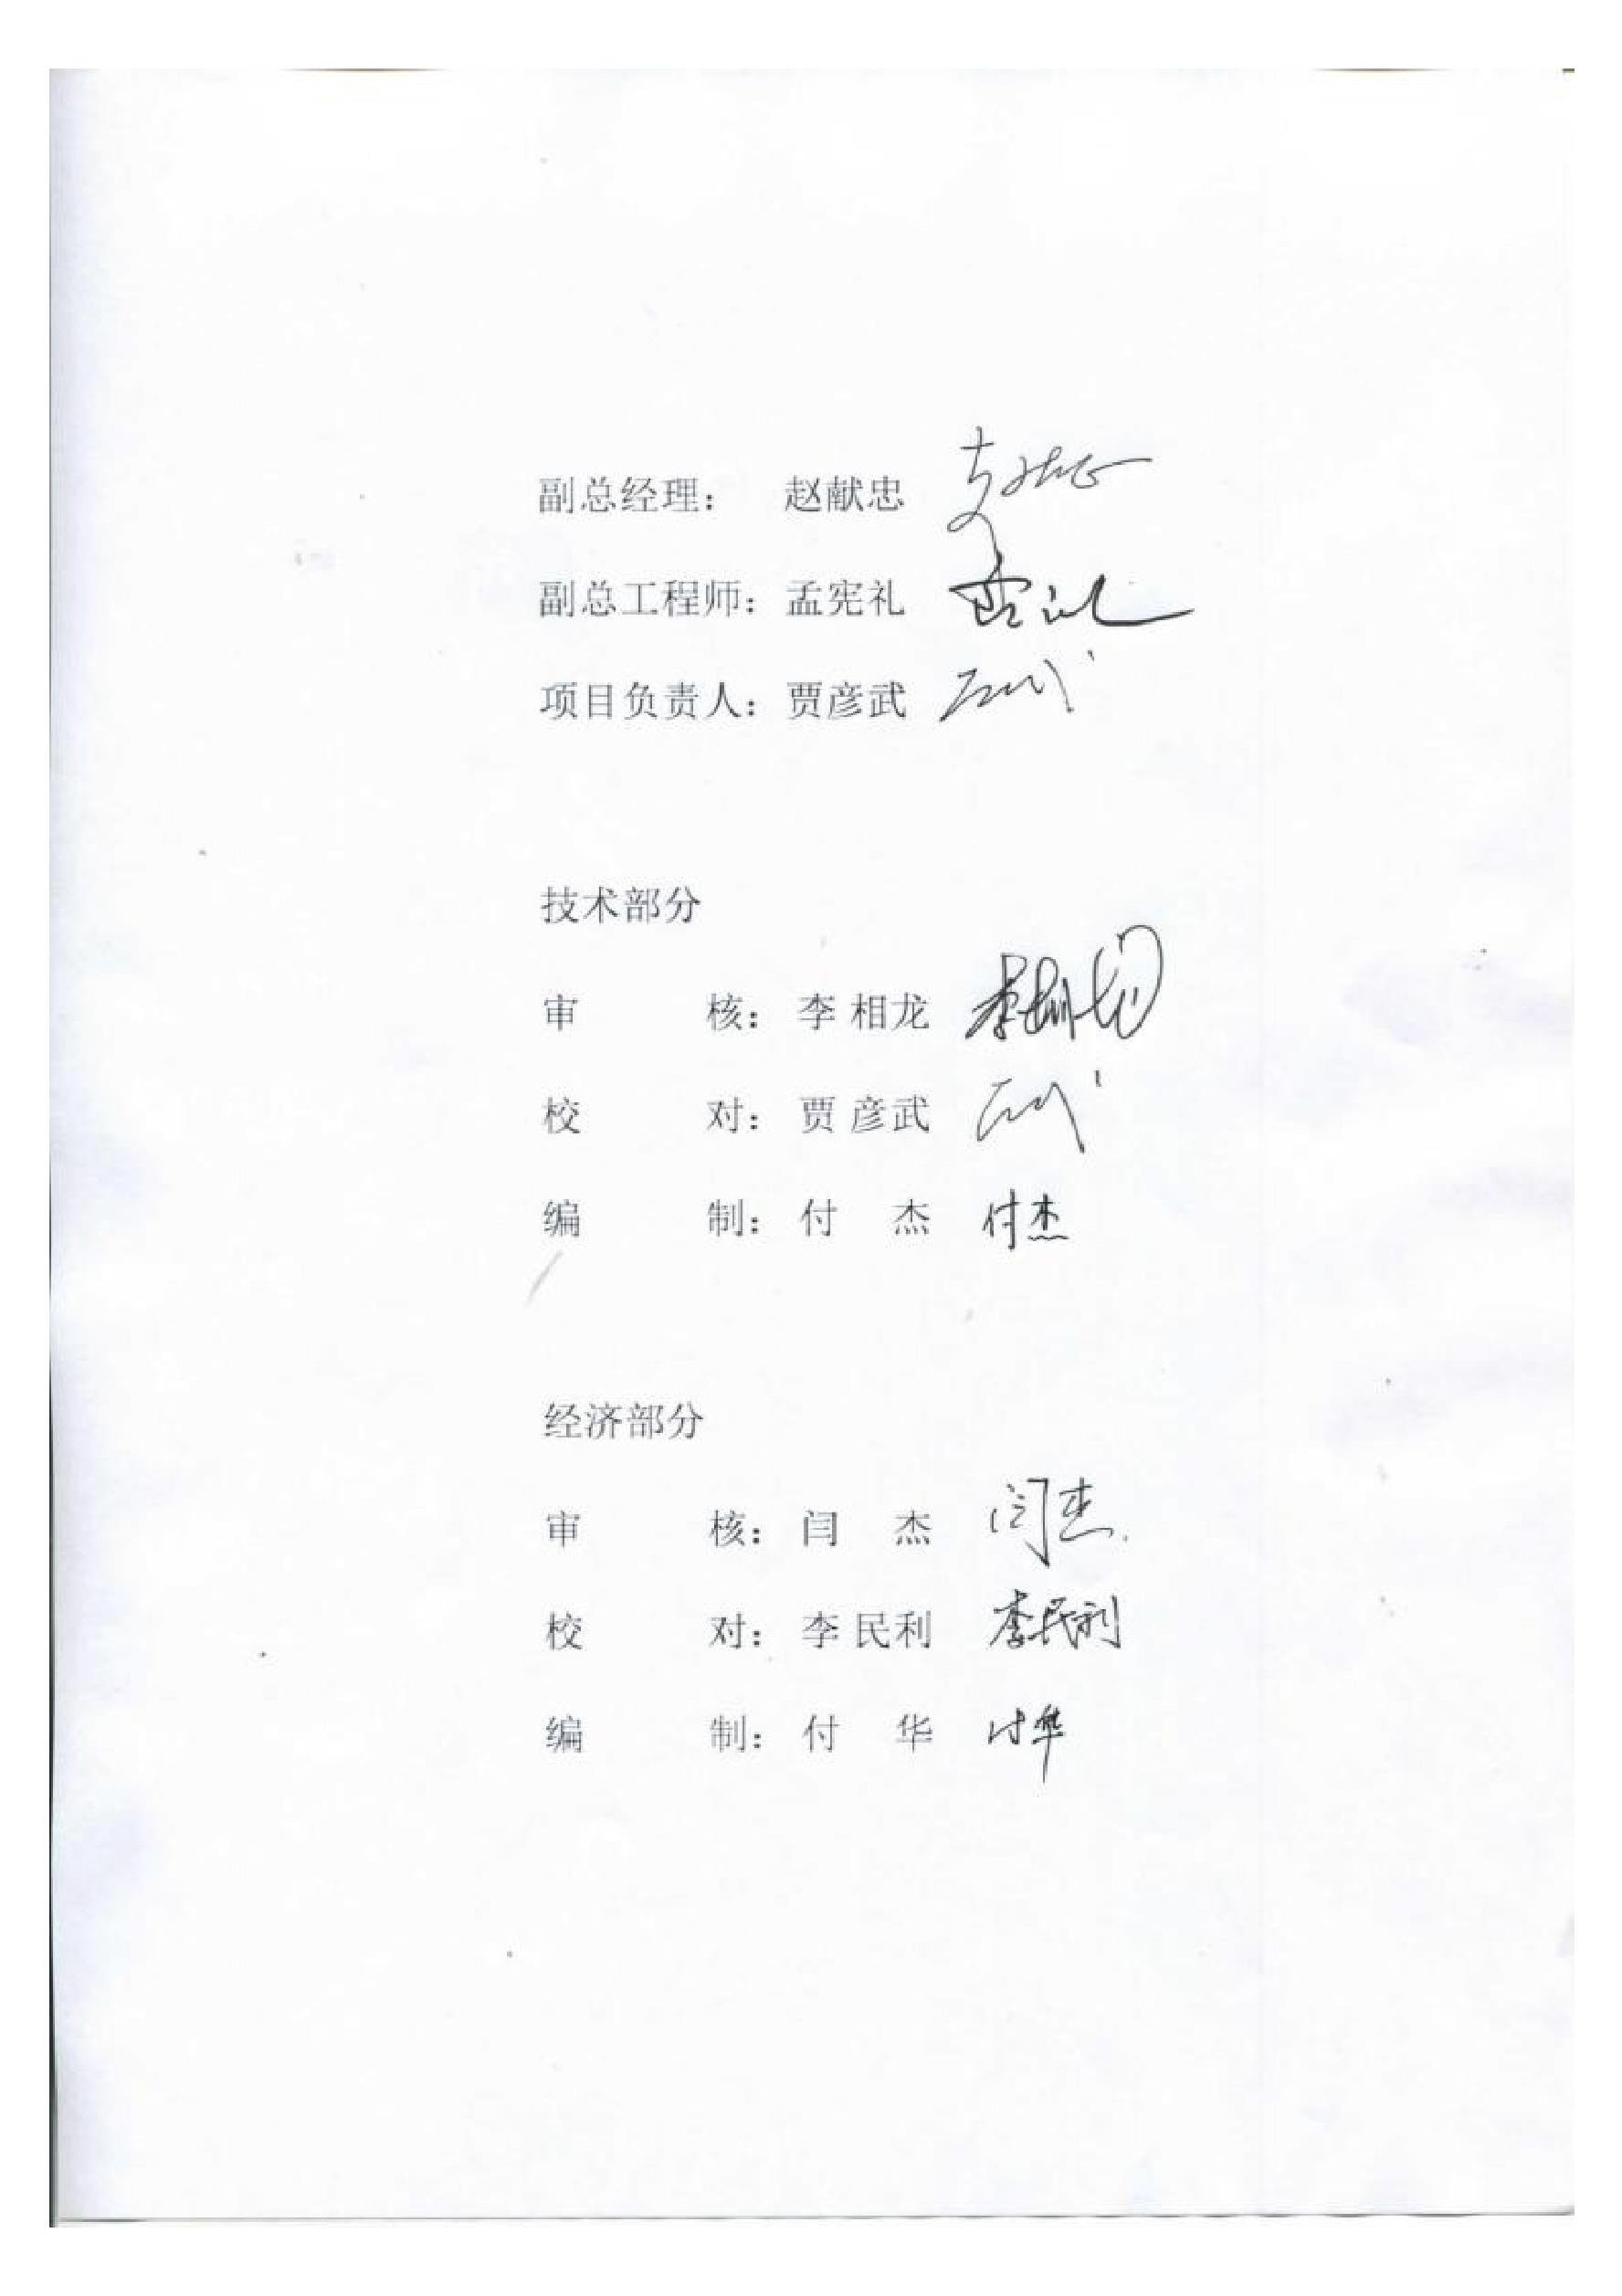 副总经理： 赵献忠
副总工程师：孟宪礼
项目负责人：贾彦武
技术部分
审 核：李相龙 李相龙
校 对：贾彦武
编 制：付 杰 付杰
经济部分
审 核：闫 杰 闫杰
校 对：李民利 李民利
编 制：付 华 付华